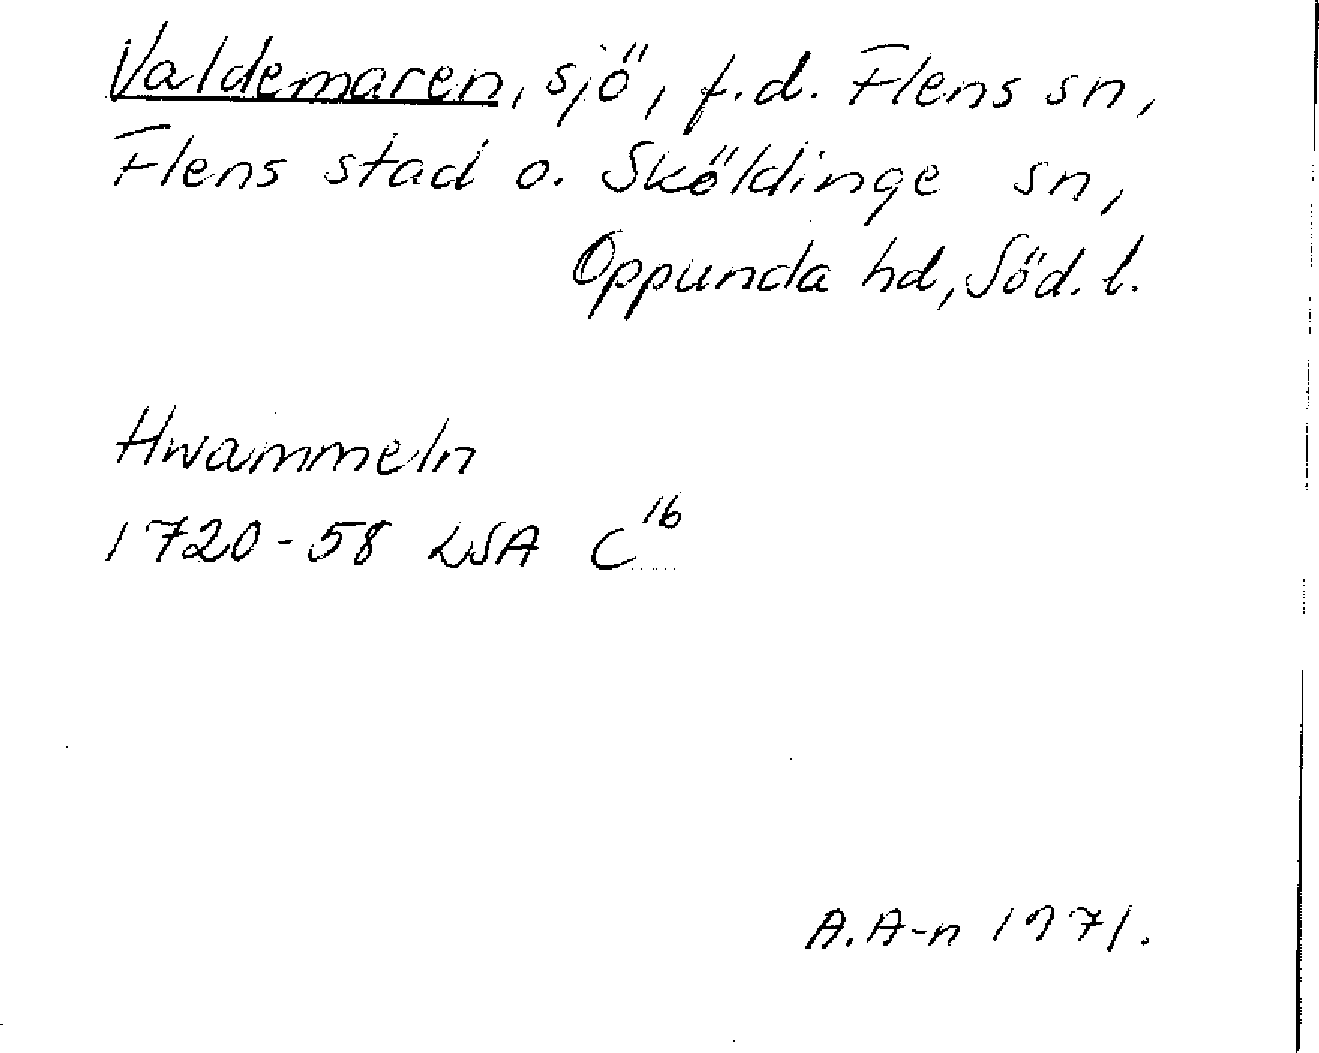 Valdemaren, sjö, f.d. Flens sn,
Flens stad o. Sköldinge sn,
Oppunda hd, Söd. l.
Hwammeln
1720-58 LSA C¹⁶
A.A-n 1971.